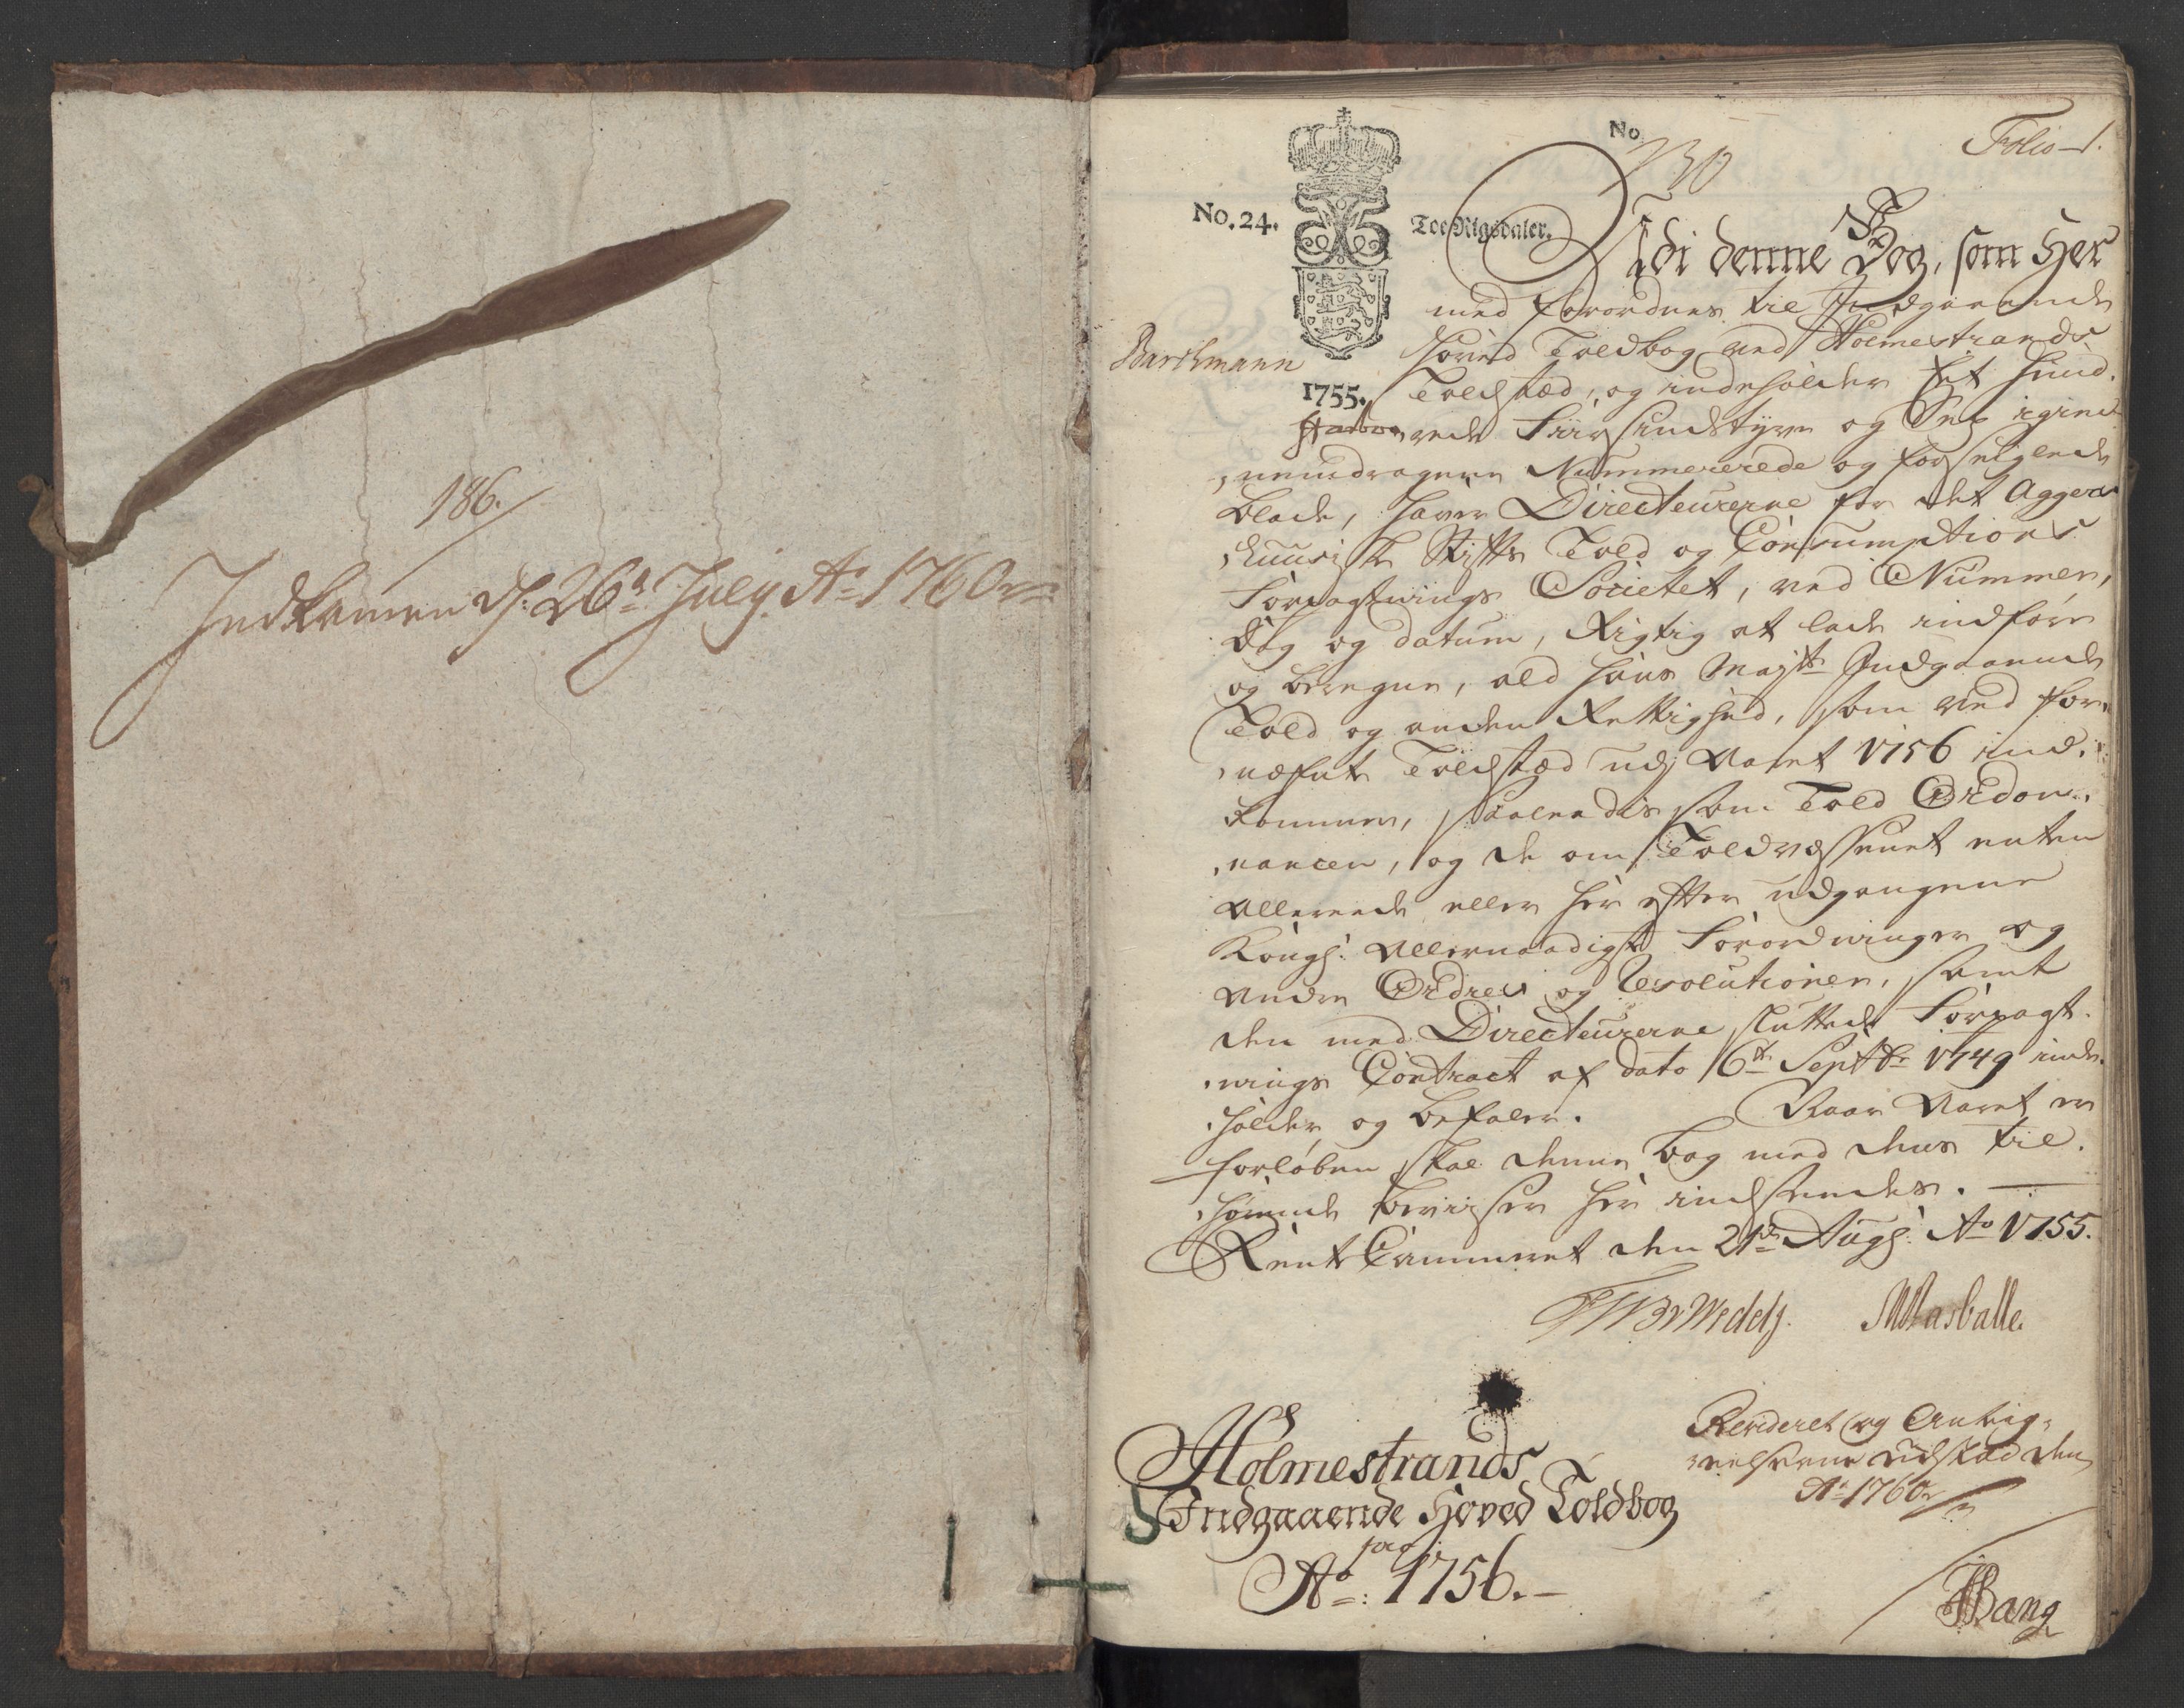 186.
Indkommen d: 26d July Ao 1760
No. 24.
No
730
Toe Rigsdaler.
Folio 1.
Barthmann
1755.
Udi denne Bog, som Her
med forordnes til Indgaaende
Hoved Toldbog ved Holmestrands
Toldsted, og indeholder Et Hund,
rede Fiirsindstyve og Sex igien,
,nemdragene Nummererede og forseiglede
Blade, haver Directeurerne for det Agger,
,huusiske Stifts Told og Consumptions
Forpagtnings Societet, ved Nummer,
Dag og datum, Rigtig at lade indføre
og beregne, ald Hans Maytt Indgaaende
Told og anden Rettighed, som ved for,
,nefnte Toldsted udj Aaret 1756 ind,
kommer, saaledis som Told Ordon,
,nancen, og de om Toldvæsenet enten
allereede eller her efter udgangene
Kongl: Allernaadigste Forordninger og
Andre Ordres og Resolutioner, samt
den med Directeurerne sluttede Forpagt,
,nings Contract af dato 16de Septbr 1749 inde,
,holder og befaler. Naar Aaret er
forløben skal denne bog med dens til,
,hørende beviiser her indsendes.
Rente Cammeret den 21de Augs: Ao 1755.
FW Wedels. Masballe.
Holmestrands
Indgaaende Hoved Toldbog
for
Ao: 1756.
Revideret og Anteig,
,nelserne udstæd den
Ao 1760
Bang